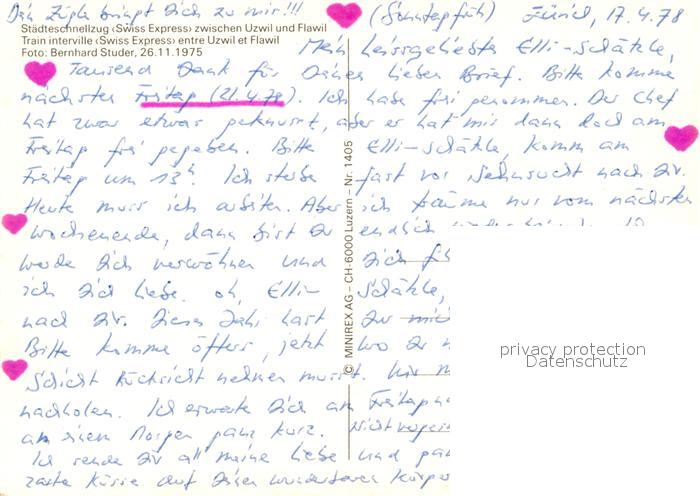 Dein Zügle bringt Dich zu mir!!! (Sonntagfrüh) Zürich, 17.4.78
Städteschnellzug ‹Swiss Express› zwischen Uzwil und Flawil
Train interville ‹Swiss Express› entre Uzwil et Flawil
Foto: Bernhard Studer, 26.11.1975
Mein heissgeliebtes Elli-Schätzle,
Tausend Dank für Deinen lieben Brief. Bitte komme
nächsten Freitag (21.4.78). Ich habe frei genommen. Der Chef
hat zwar etwas geknurrt, aber er hat mir dann doch am
Freitag frei gegeben. Bitte Elli-Schätzle, komm am
Freitag um 13h. Ich sterbe fast vor Sehnsucht nach Dir.
Heute muss ich arbeiten. Aber ich träume nur vom nächsten
Wochenende, dann bist Du endlich
werde Dich verwöhnen und Dich
ich Dich liebe. Oh, Elli-Schätzle,
nach Dir. Dieses Jahr hast Du
Bitte komme öfters, jetzt wo Du
Schicht Rücksicht nehmen musst. Wir
nachholen. Ich erwarte Dich am Freitag
an einem Morgen ganz kurz. Nicht
Ich sende Dir all meine Liebe und
zarte Küsse auf Deinen wunderbaren Körper
© MINIREX AG – CH-6000 Luzern – Nr. 1405
privacy protection
Datenschutz